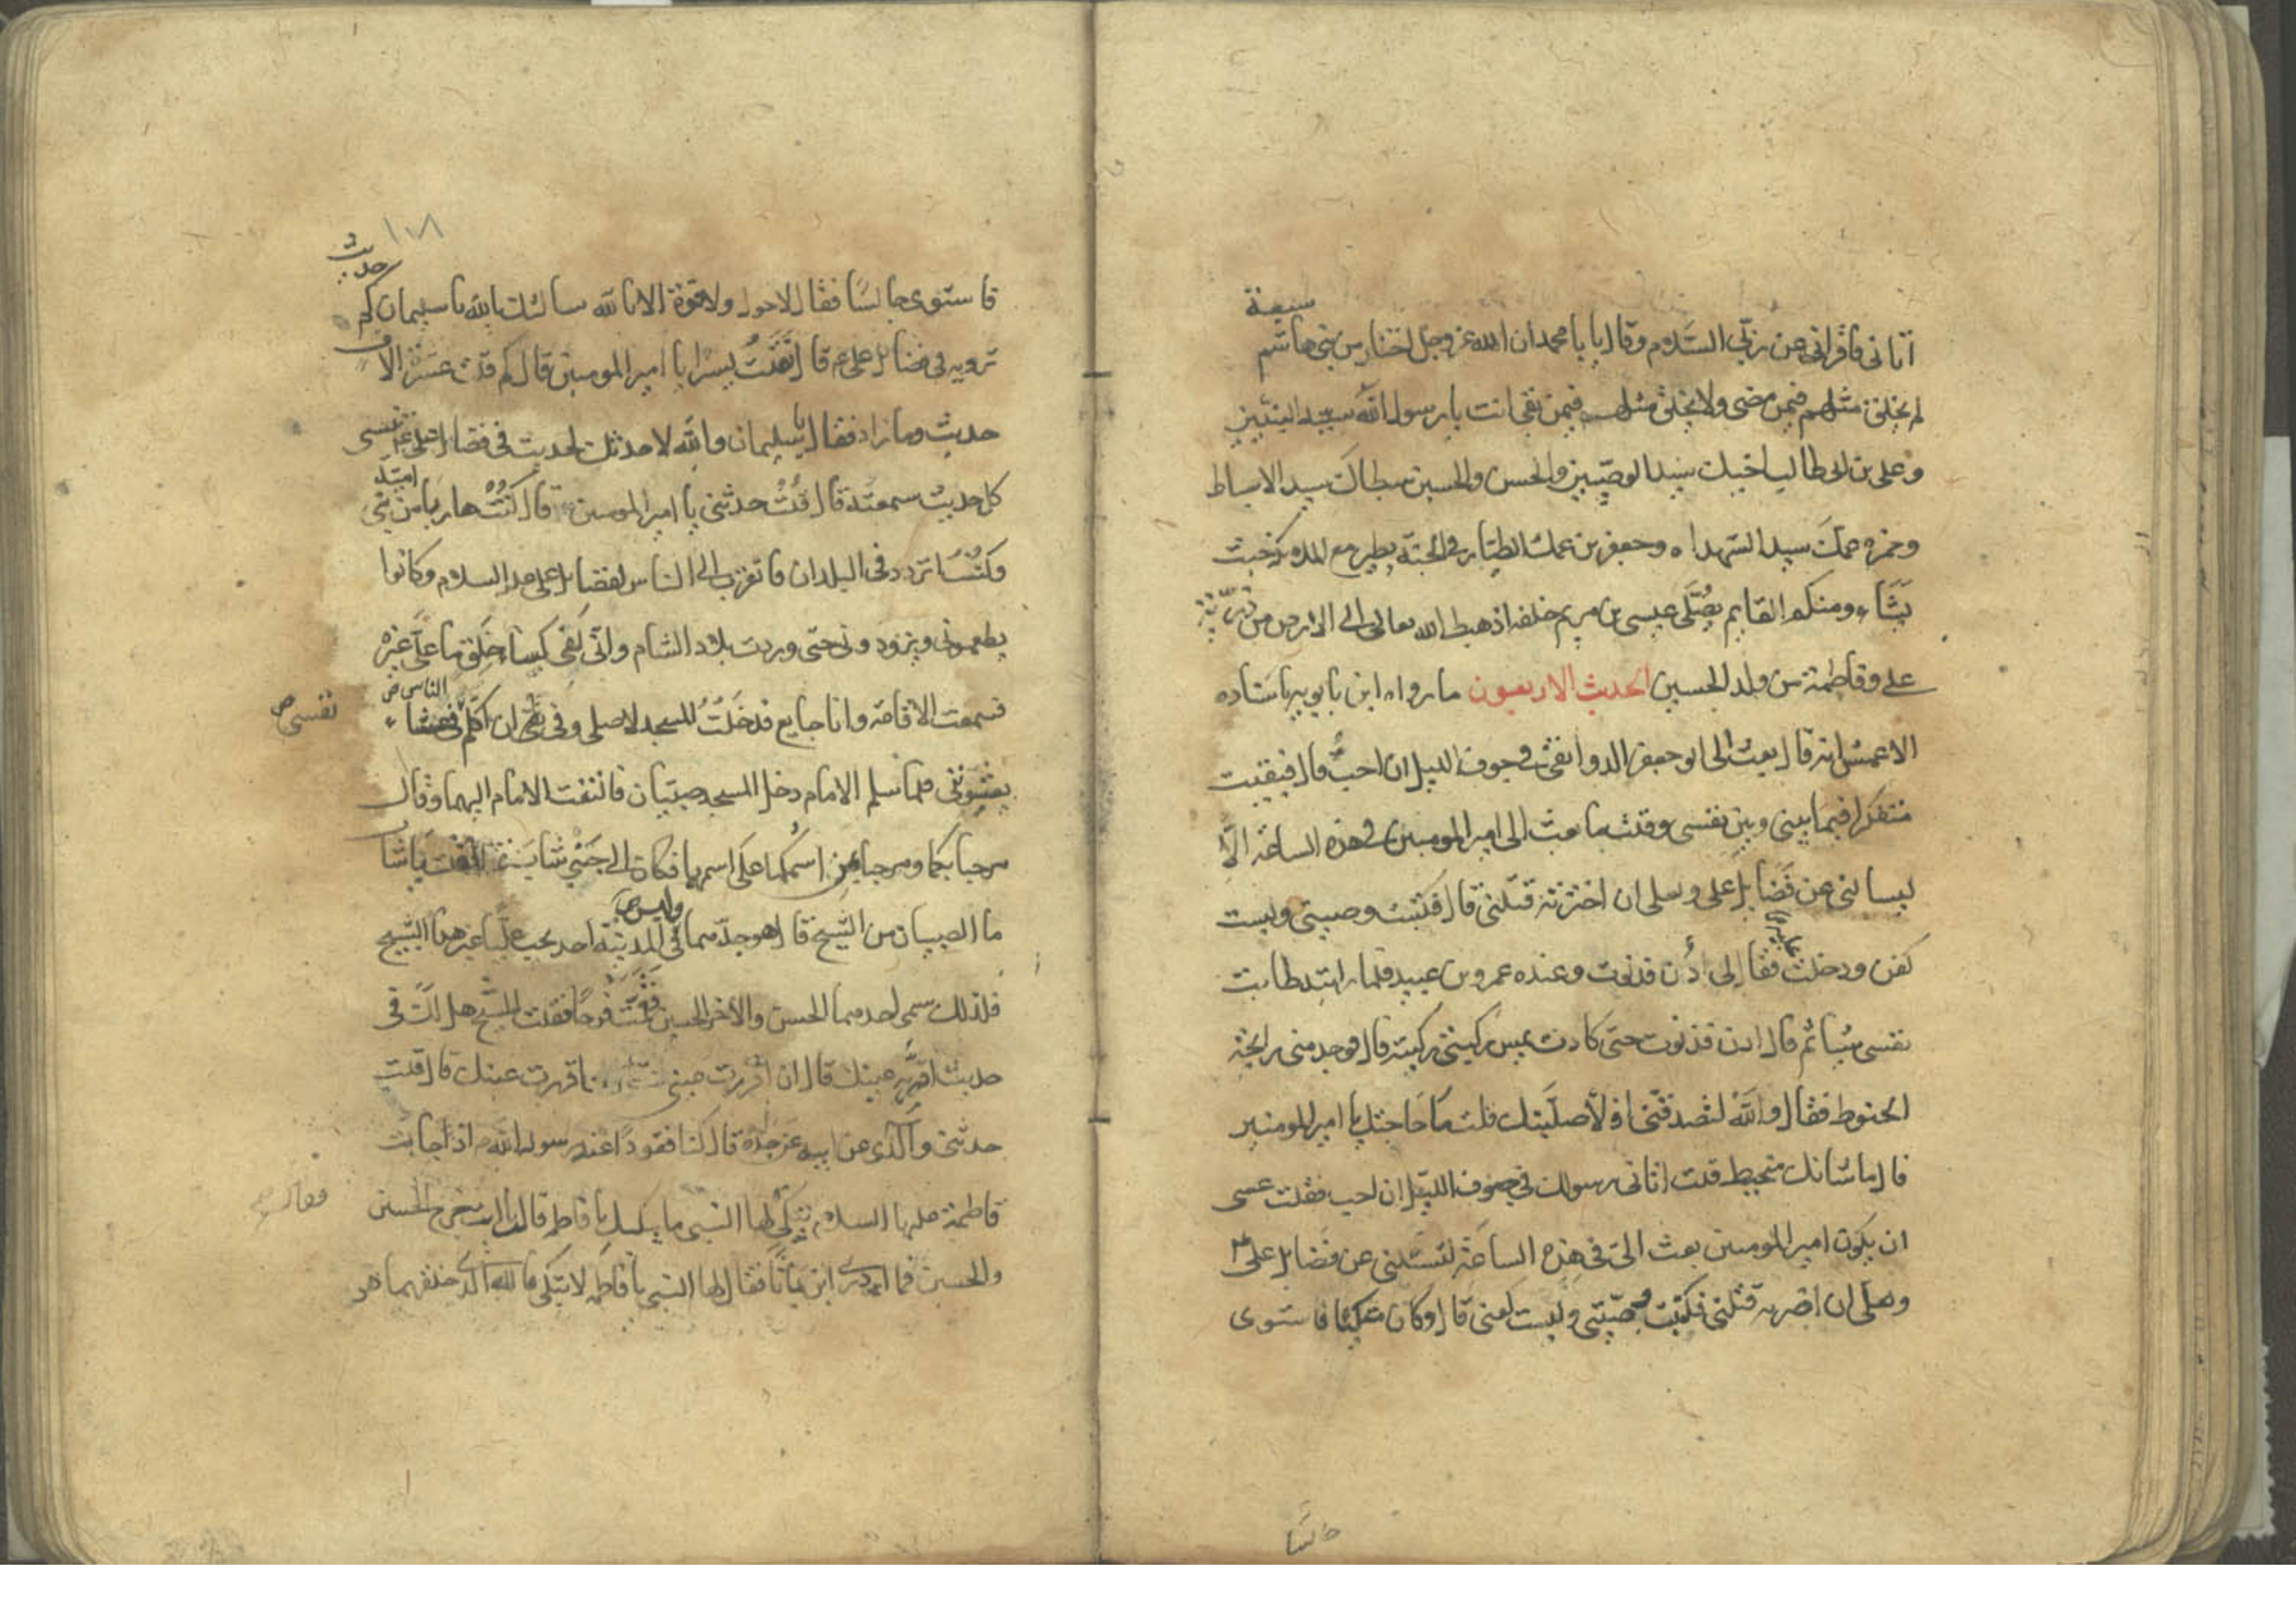 سبعة
اتانى فاقرانى عن ربّي السَّلام وقال يا محمد ان الله عز وجل اختار من بني هاشم
لم يخلق مثلهم فيمن مضى ولا يخلق مثلهم فيمن بقى انت يا رسول الله سيد النبيين
وعلى بن ابى طالب اخيك سيد الوصيين والحسن والحسين سبطاك سيد الاسباط
وحمزه عمك سيد الشهداء وجعفر بن عمك الطيار في الجنة يطير مع الملايكة حيث
يَشَاء ومنكم القايم يُصَلّى عيسى بن مريم خلفه اذ هبط الله تعالى الى الارض من ذرية
على وفاطمة من ولد الحسين الحديث الاربعون ما رواه ابن بابويه باسناده
الاعمش انه قال بعث الى ابو جعفر الدوانقى في جوف الليل ان اجب قال فبقيت
متفكرا فيما بيني وبين نفسى وقلت ما بعث الى امير المومنين في هذه الساعة الا
ليسالنى عن فَضَايل على ولعلى ان اخبرته قتلنى قال فكتبت وصيتى ولبست
كفنى ودخلت عليه فقال لى ادُن فدنوت وعنده عمرو بن عبيد فلما رايته طابت
نفسى شيا ثم قال ادن فدنوت حتى كادت تمس ركبتى ركبته قال فوجد منى رايحة
الحنوط فقال والله لتصدقنى او لاصلبنك قلت ما حاجتك يا امير المومنين
قال ما شانك متحيط قلت اتانى رسولك في جوف الليل ان اجب فقلت عسى
ان يكون امير المومنين بعث الىّ في هذه الساعة لتسئلنى عن فضايل على
ولعلى ان اخبرته قتلنى فكتبت وصيتى ولبست كفنى قال وكان متكئا فاستوى
جالسا
١٠٨
حديث
فاستوى جالسًا فقال لا حول ولا قوة الا بالله سالتك بالله يا سليمان كم
ترويه في فضايل على ع قال فقلت يسرا يا امير المومنين قال كم قلت عشرة الاف
حديث وما زاد فقال يا سليمان والله لاحدثك بحديث في فضايل على تنسى
كل حديث سمعته قال قلت حدثنى يا امير المومنين قال كُنْتُ هاربا من بني امية
وكنت اتردد في البلدان فاتقرب الى الناس بفضايل على عليه السلام وكانوا
يطعمونى ويزودونى حتى وردت بلاد الشام وانى لفى كساء خَلق ما علىّ غيره
فسمعت الاقامه وانا جايع فدخَلتُ المسجد لاصلى وفى نفسى ان اكلم الناس فى عشاء
نفسى ص
يعشونى فلما سلم الامام دخل المسجد صبيان فالتفت الامام اليهما وقال
مرحبا بكما ومرحبا بمن اسمُكما على اسمهما فكان الى جَنبى شاب فقلت يا شاب
ما الصبيان من الشيخ قال هو جدّهما وليس في المدينة احد يحب عليًّا غير هذا الشيخ
فلذلك سمى احدهما الحسن والاخر الحسين فقمت فرحًا فقلت للشيخ هل لك في
حديث اقر به عينك قال ان اقررت عينى اقررت عينك قال قلت
حدثنى والدى عن ابيه عن جده قال كنا قعودًا عند رسول الله اذا جاءت
فاطمة عليها السلام تبكى لها النبى ما يبكيك يا فاطمه قالت يا ابه خرج الحسن
فقال ص
والحسين فما ادرى اين باتا فقال لها النبى يا فاطمه لا تبكى فالله الذى خلقهما هو